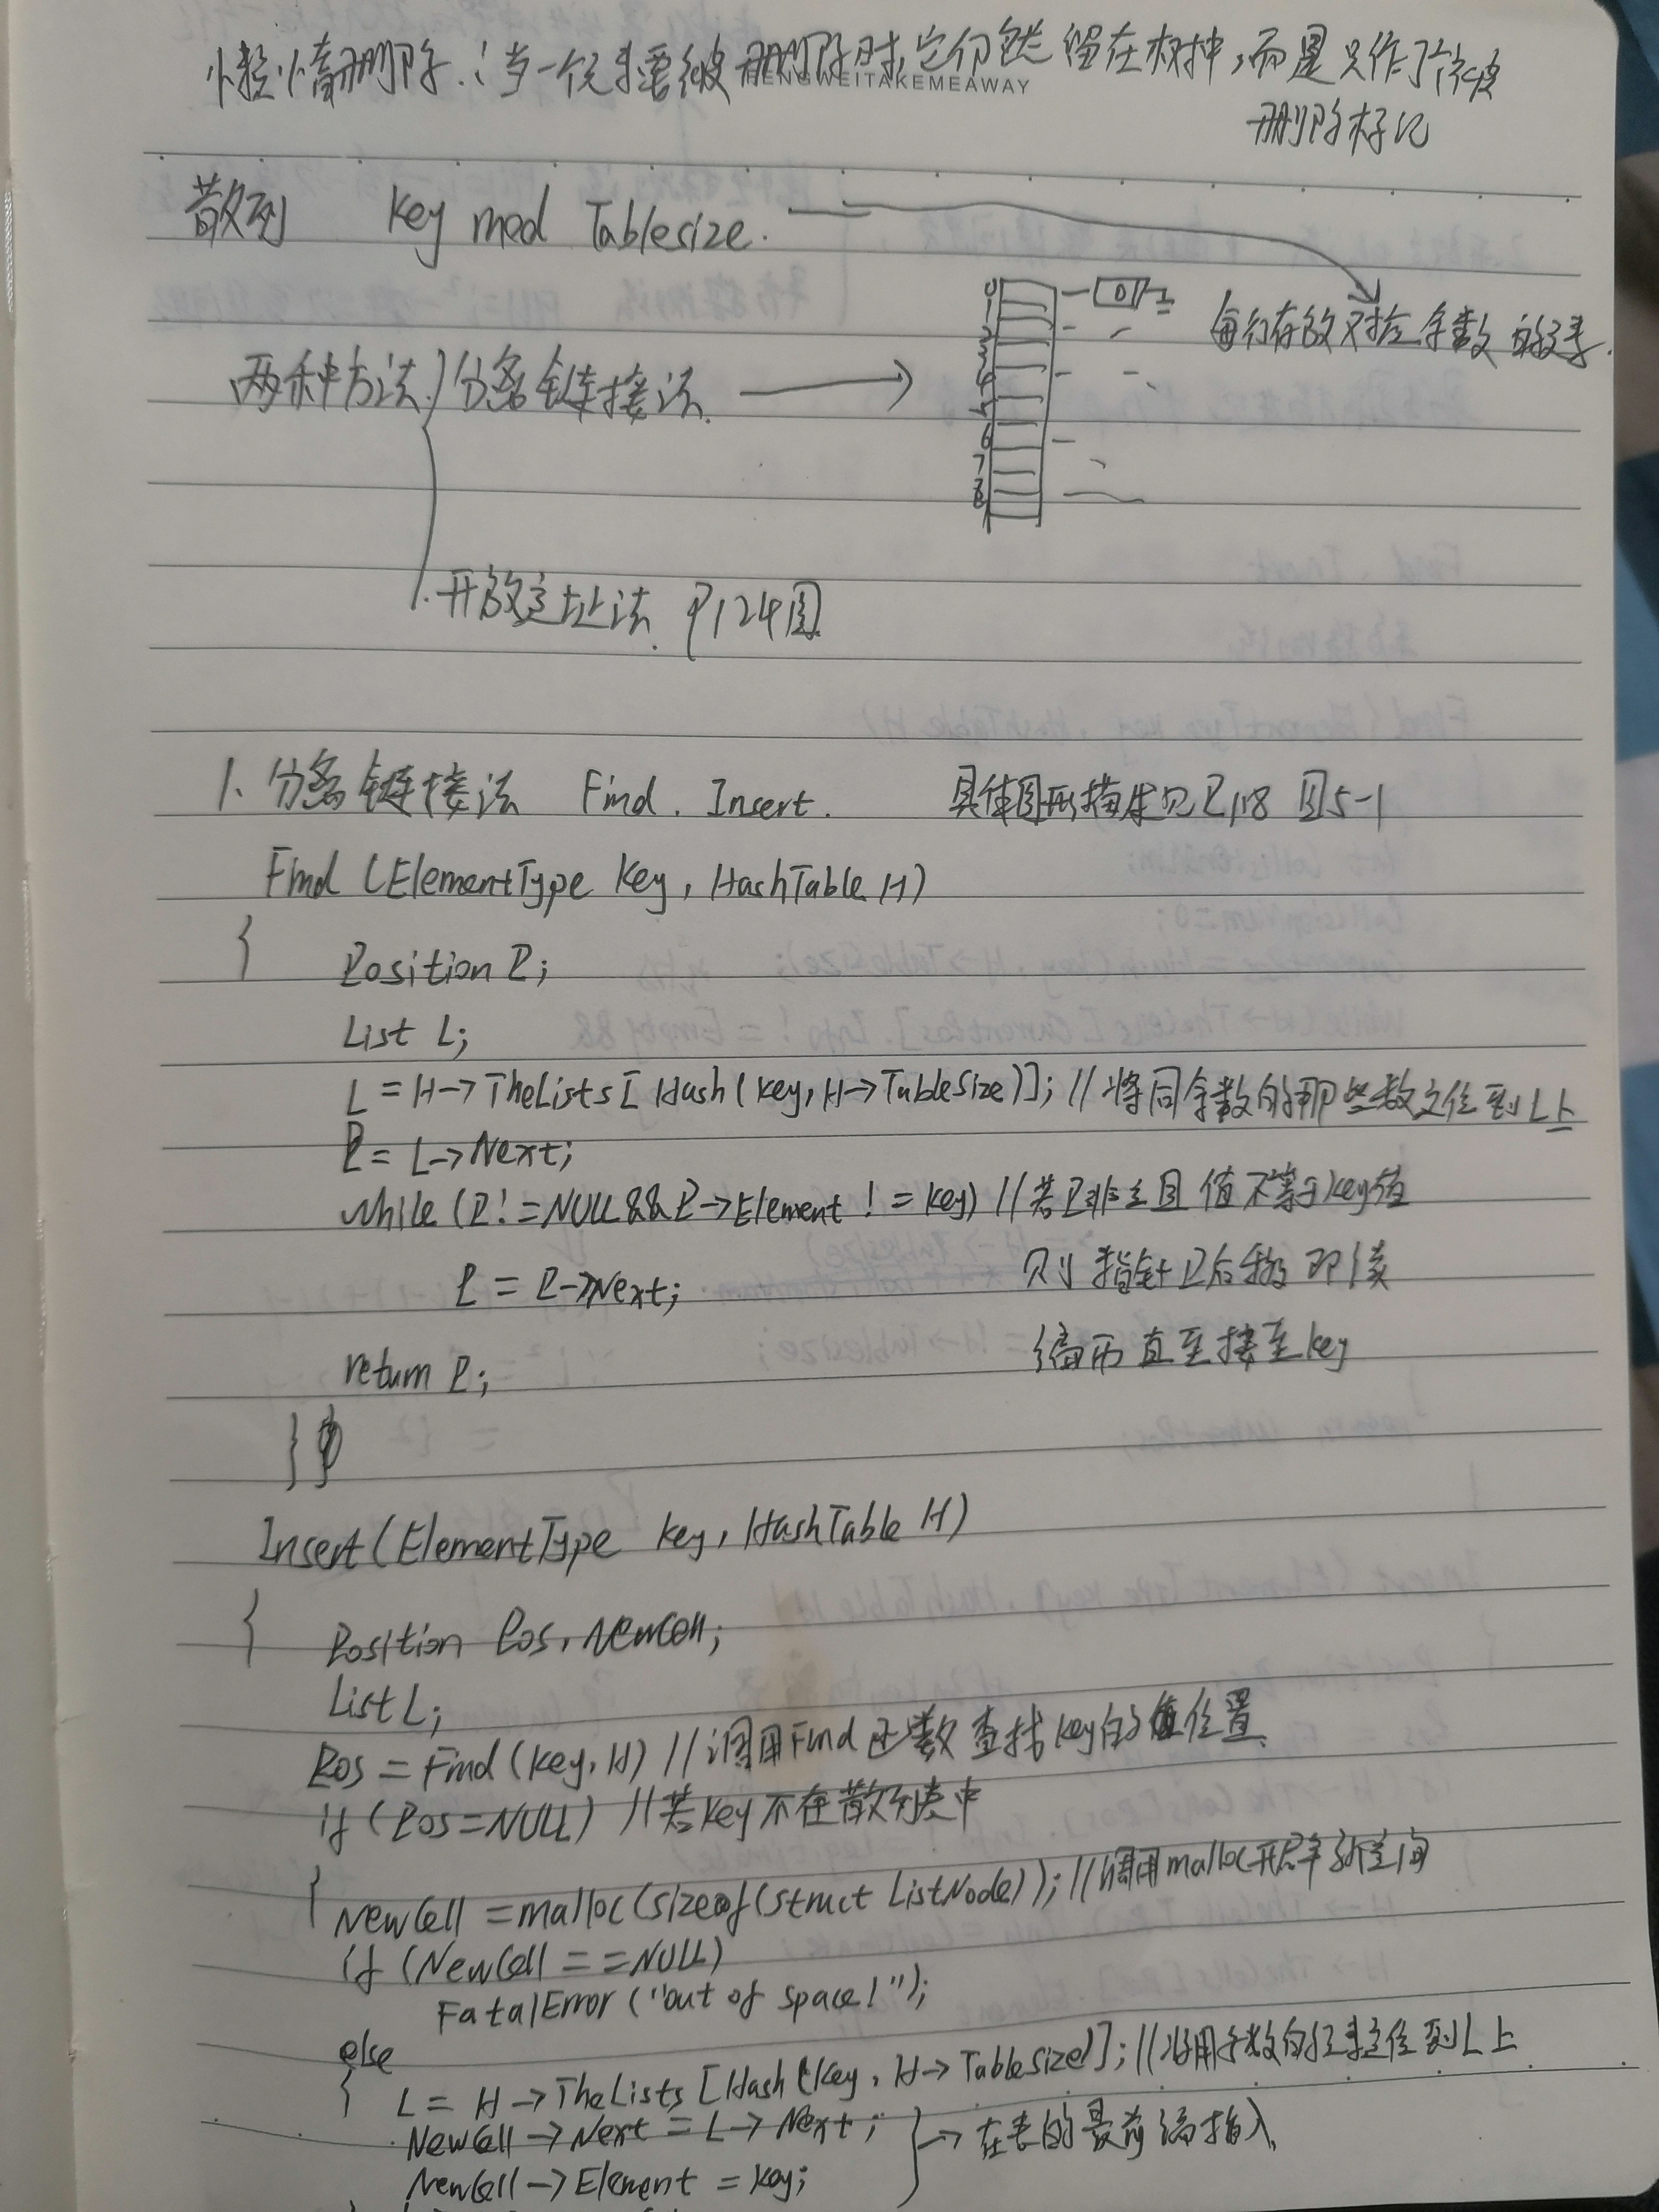 懒惰删除:当一个元素要被删除时,它仍然留在树中,而是只作了个被
HENGWEITAKEMEAWAY
删除标记
散列 Key mod Tablesize.
0
1
2
3
4
5
6
7
8
每行存放对应余数的元素.
两种方法 分离链接法.
开放定址法. P124图
1. 分离链接法 Find. Insert. 具体图形描述见P118 图5-1
Find (ElementType Key, HashTable H)
{ Position P;
List L;
L = H→TheLists[Hash(Key, H→TableSize)]; //将同余数的那些数定位到L上
P = L→Next;
while (P!=NULL&&P→Element!=Key) //若P非空且值不等于key值
P = P→Next; 则指针P后移 即该
return P; 遍历直至接至key
}
Insert(ElementType Key, HashTable H)
{ Position Pos, NewCell;
List L;
Pos = Find(Key, H) //调用Find函数查找Key的值位置
if (Pos=NULL) //若Key不在散列表中
{ NewCell=malloc(sizeof(struct ListNode)); //调用malloc开辟新空间
if (NewCell==NULL)
FatalError("out of space!");
else
{ L = H→TheLists[Hash(Key, H→TableSize)]; //将同余数的元素定位到L上
NewCell→Next = L→Next;
NewCell→Element = Key; } → 在表的最前端插入.